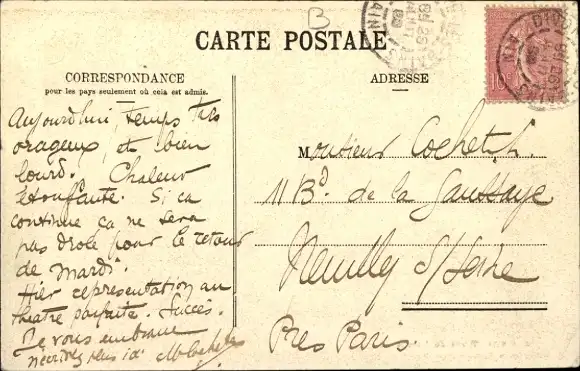 B
CARTE POSTALE
CORRESPONDANCE
pour les pays seulement où cela est admis.
ADRESSE
10c
DIVONNE
AIN
Aujourd'hui, temps très
orageux, et bien
lourd. Chaleur
étouffante. Si ça
continue ça ne sera
pas drole pour le retour
de mardi.
Hier représentation au
théatre parfaite. Succès.
Je vous embrasse
n'écrivez plus ici
Monsieur Cochet
11 Bd. de la Saussaye
Neuilly s/ Seine
Près Paris.